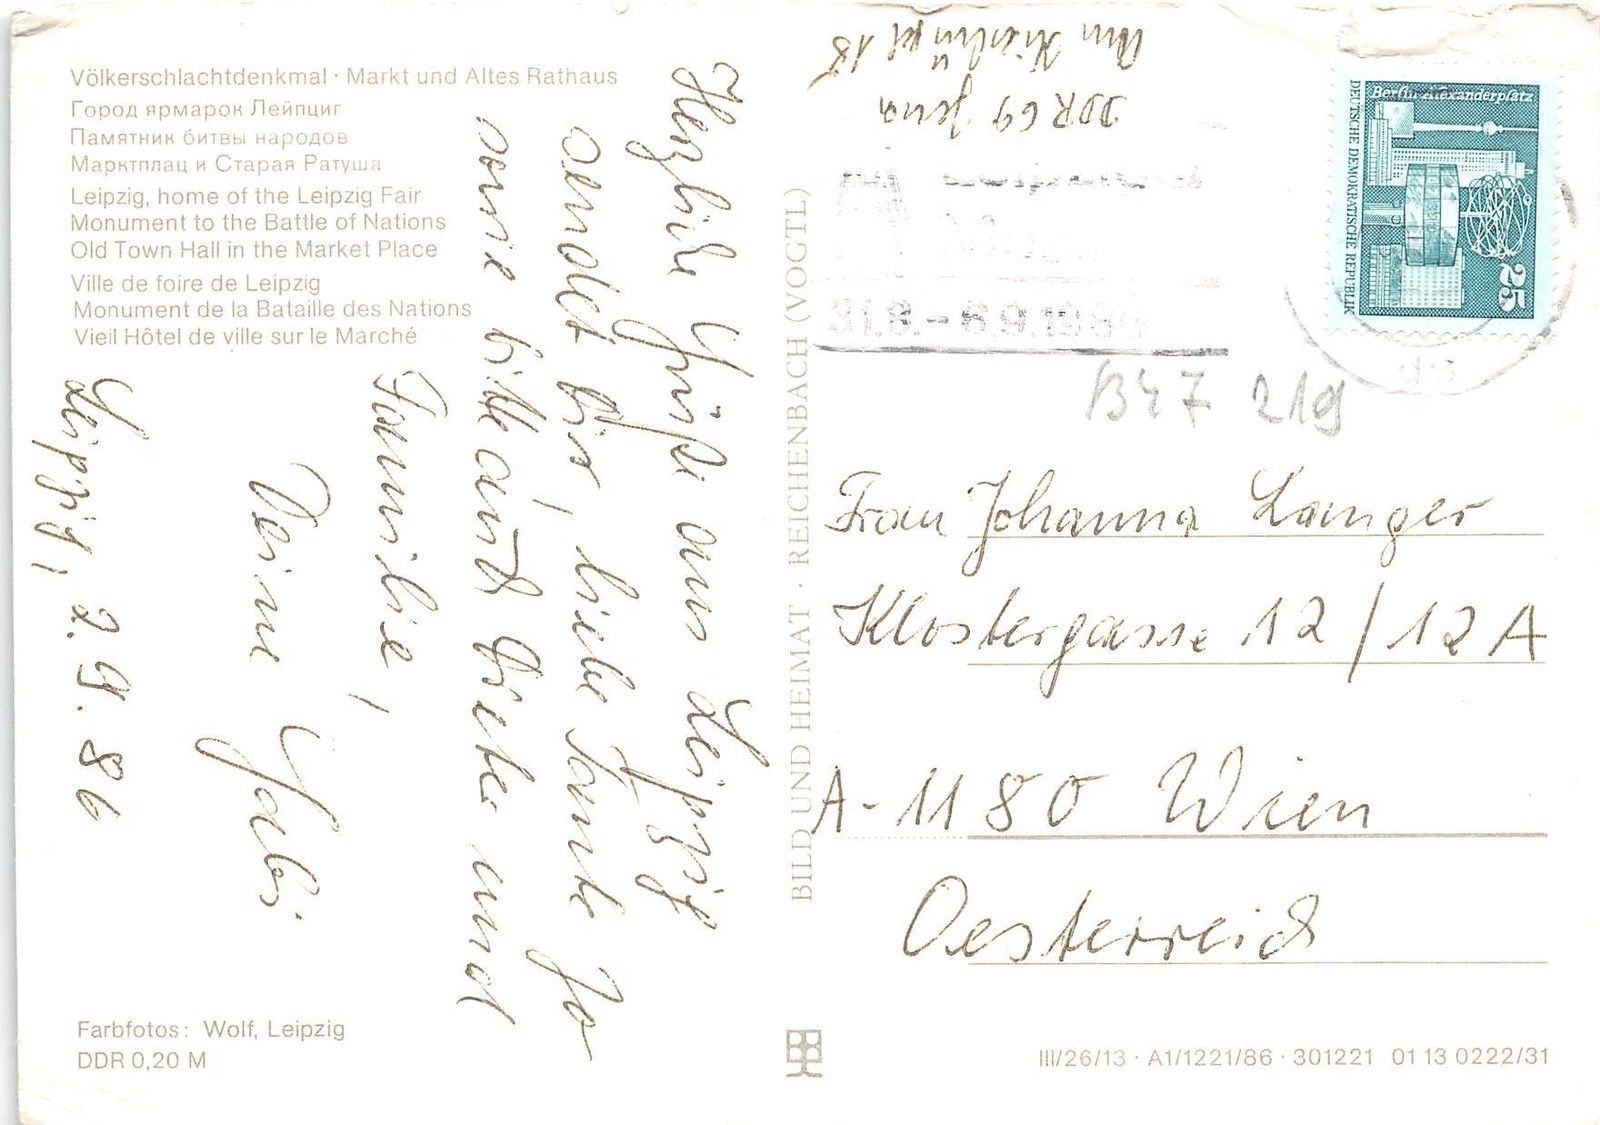 Völkerschlachtdenkmal · Markt und Altes Rathaus
Город ярмарок Лейпциг
Памятник битвы народов
Марктплац и Старая Ратуша
Leipzig, home of the Leipzig Fair
Monument to the Battle of Nations
Old Town Hall in the Market Place
Ville de foire de Leipzig
Monument de la Bataille des Nations
Vieil Hôtel de ville sur le Marché
Herzliche Grüße aus Leipzig
sendet Dir, liebe Tante Jo
sowie bitte auch Dieter und
Familie,
Deine Gabi.
Leipzig, 2.9.86
Farbfotos: Wolf, Leipzig
DDR 0,20 M
BILD UND HEIMAT · REICHENBACH (VOGTL)
Am 18
DDR 69 Jena
31.8.-6.9.1986
Berlin-Alexanderplatz
DEUTSCHE DEMOKRATISCHE REPUBLIK
25
B47 219
Frau Johanna Langer
Klostergasse 12/12A
A-1180 Wien
Oesterreich
III/26/13 · A1/1221/86 · 301221 01 13 0222/31